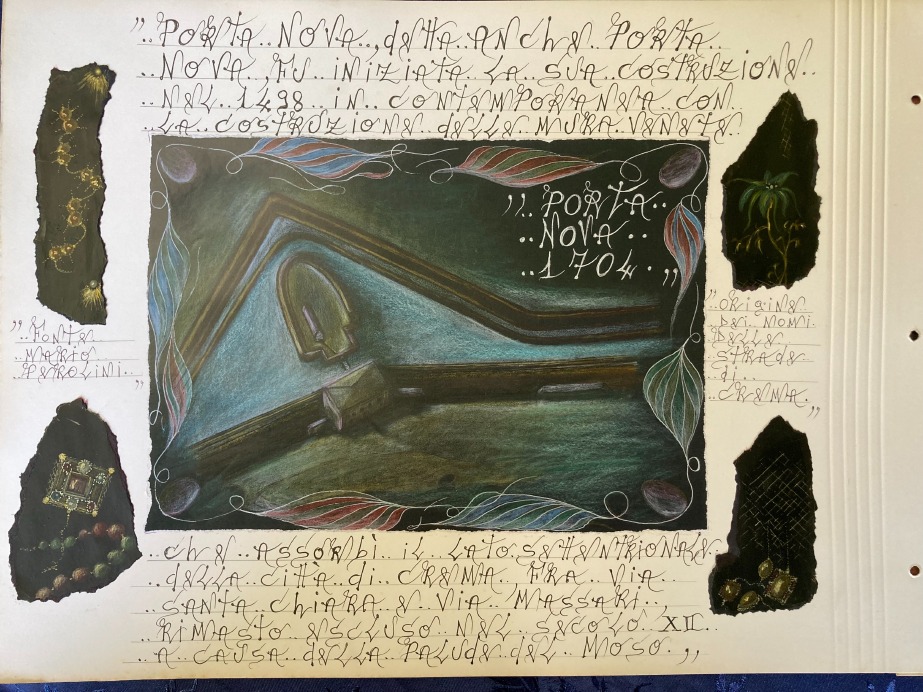 „..PORTA..NOVA..,detta..ANChe..PORTA..
..NOVA..,FU..iNiZiATA..LA..SUA..COSTRUZiONe..
..NeL..1498..iN..CONTeMPORANeA..CON..
..LA..COSTRUZiONe..deLLe..MURA..VeNeTe..
„..PORTA..
..NOVA..
..1704..„
„..FONTe..
MARiO..
PeROLiNi..
„
„ORiGiNe
Dei..NOMi..
DeLLe
STRADe
..di..
..CReMA..
„
..Che..ASSORBì..iL..LATO..SeTTeNTRiONALe
..deLLA..CiTTà..di..CReMA..,FRA..ViA..
..SANTA..ChiARA..e..ViA..MASSARi..,
..RiMASTO..eSCLUSO..NeL..SeCOLO..XII..
..A..CAUSA..deLLA..PALUDe..deL..MOSO..„